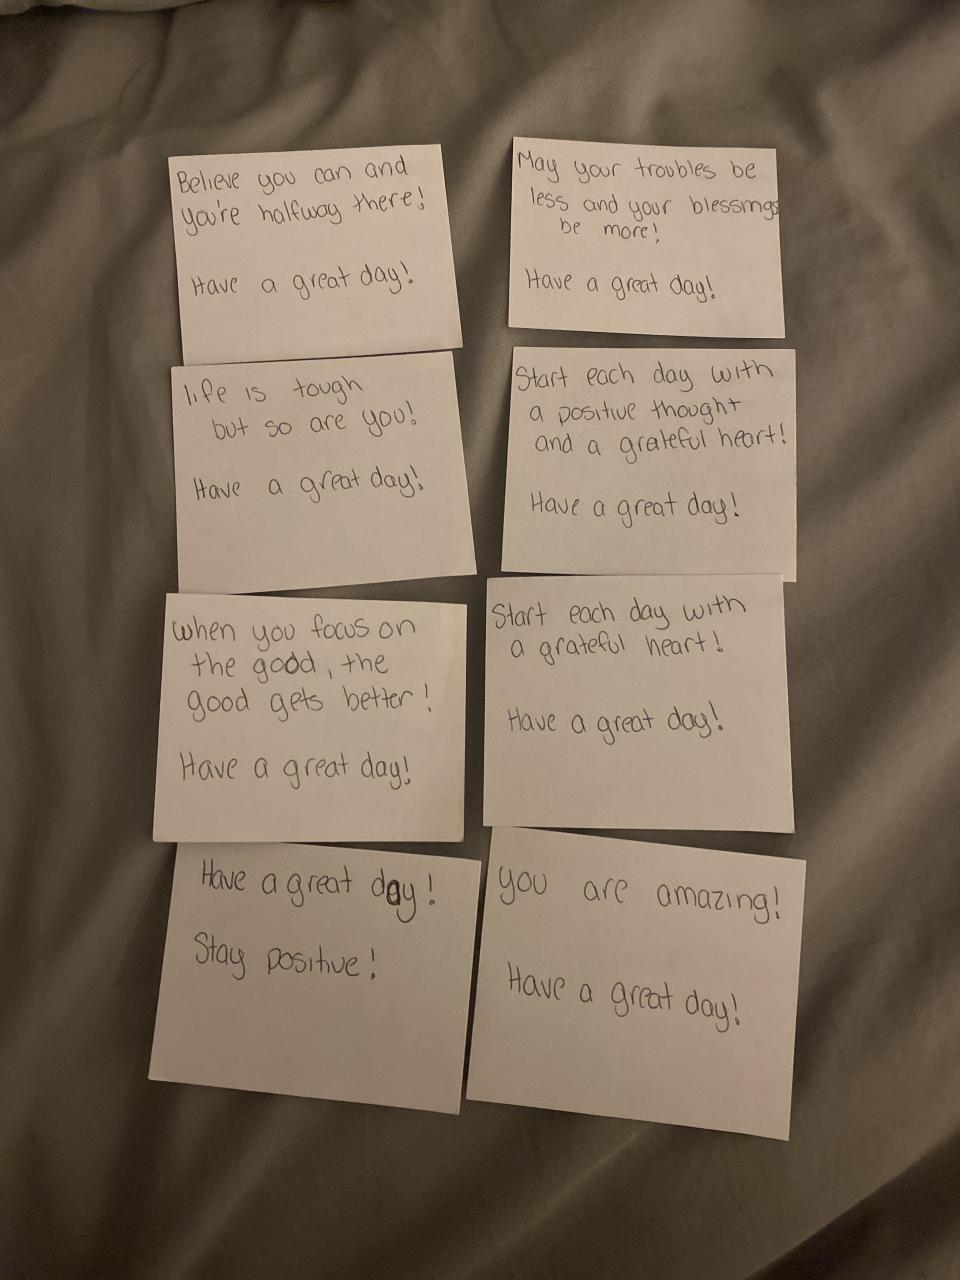 Believe you can and
you're halfway there!
Have a great day!
May your troubles be
less and your blessings
be more!
Have a great day!
life is tough
but so are you!
Have a great day!
Start each day with
a positive thought
and a grateful heart!
Have a great day!
When you focus on
the good, the
good gets better!
Have a great day!
Start each day with
a grateful heart!
Have a great day!
Have a great day!
Stay positive!
you are amazing!
Have a great day!